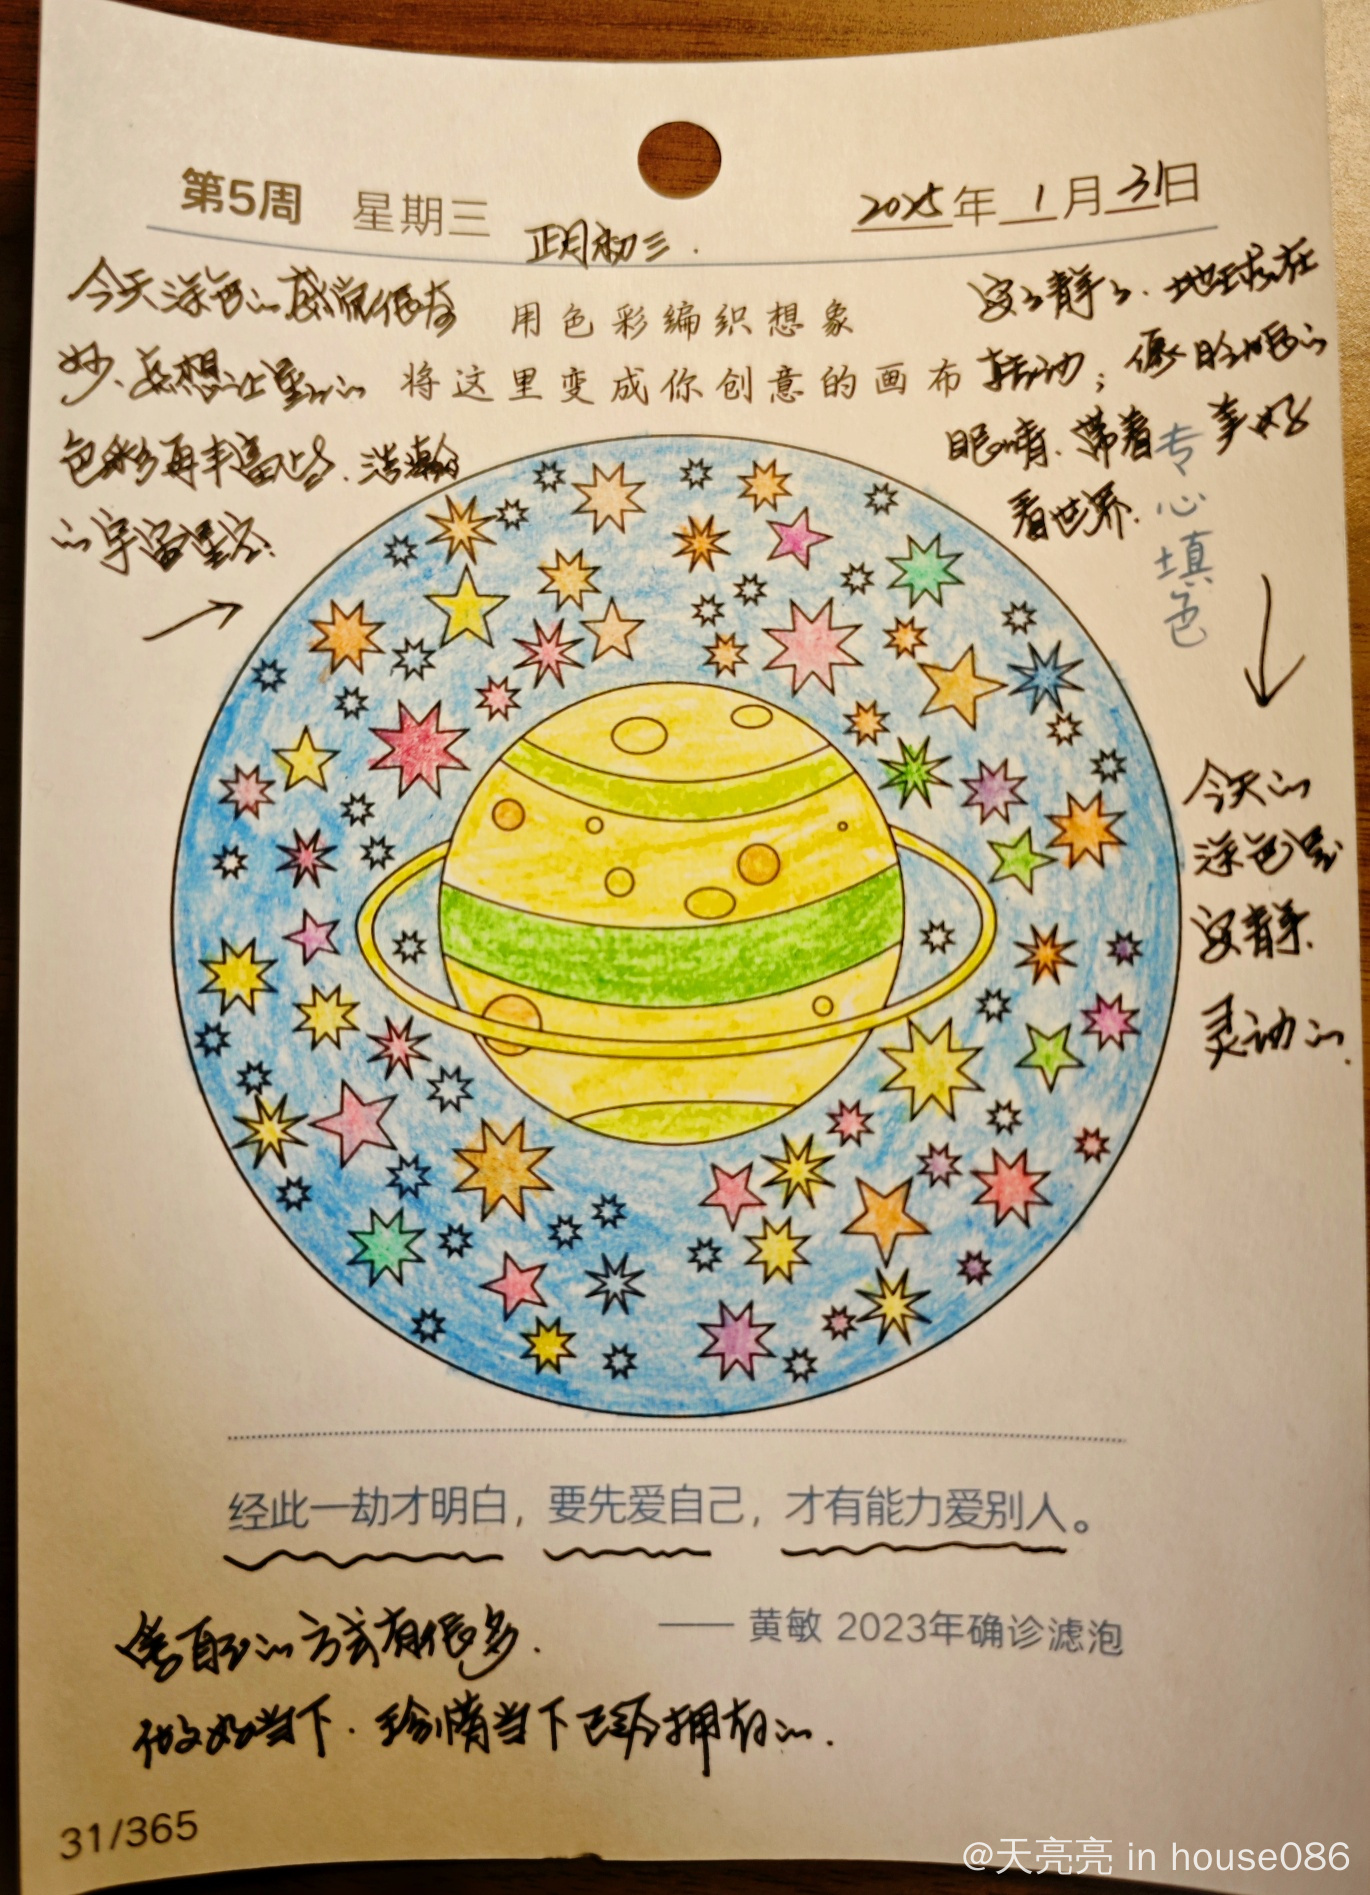 第5周 星期三 正月初三.
2025年 1月31日
今天涂色的感觉很奇
妙、在想让星星的
色彩再丰富些、浩瀚
的宇宙星空.
用色彩编织想象
将这里变成你创意的画布
安安静静、地球在
转动; 像明亮的
眼睛、带着美好
看世界.
专心填色
今天的
涂色是
安静
灵动的.
经此一劫才明白，要先爱自己，才有能力爱别人。
—— 黄敏 2023年确诊滤泡
爱自己的方式有很多.
做好当下. 珍惜当下已经拥有的.
31/365
@天亮亮 in house086